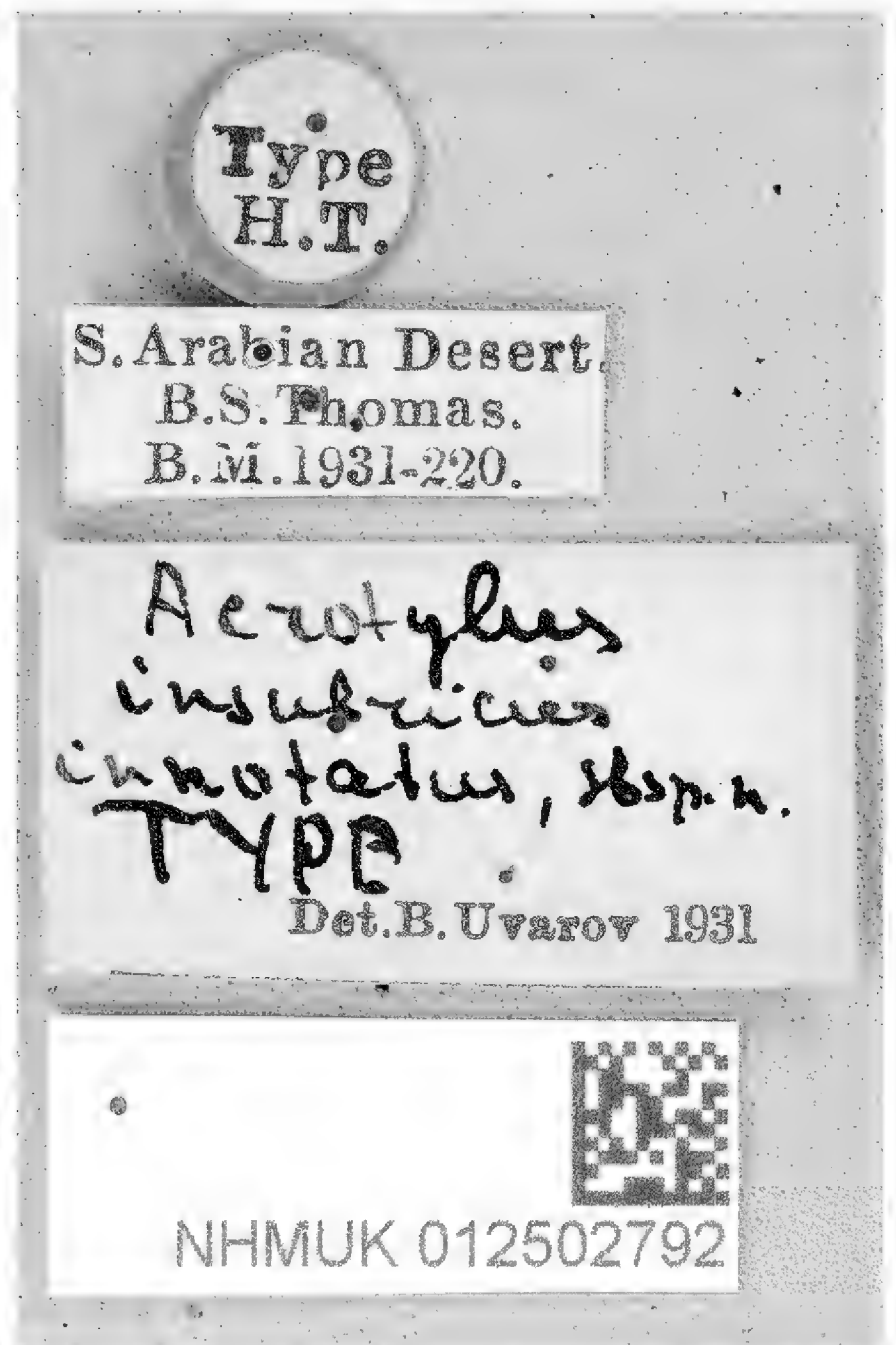 Type
H.T.
S. Arabian Desert.
B.S. Thomas.
B.M. 1931-220.
Acrotylus
insubricus
innotatus, sbsp. n.
TYPE
Det. B. Uvarov 1931
NHMUK 012502792